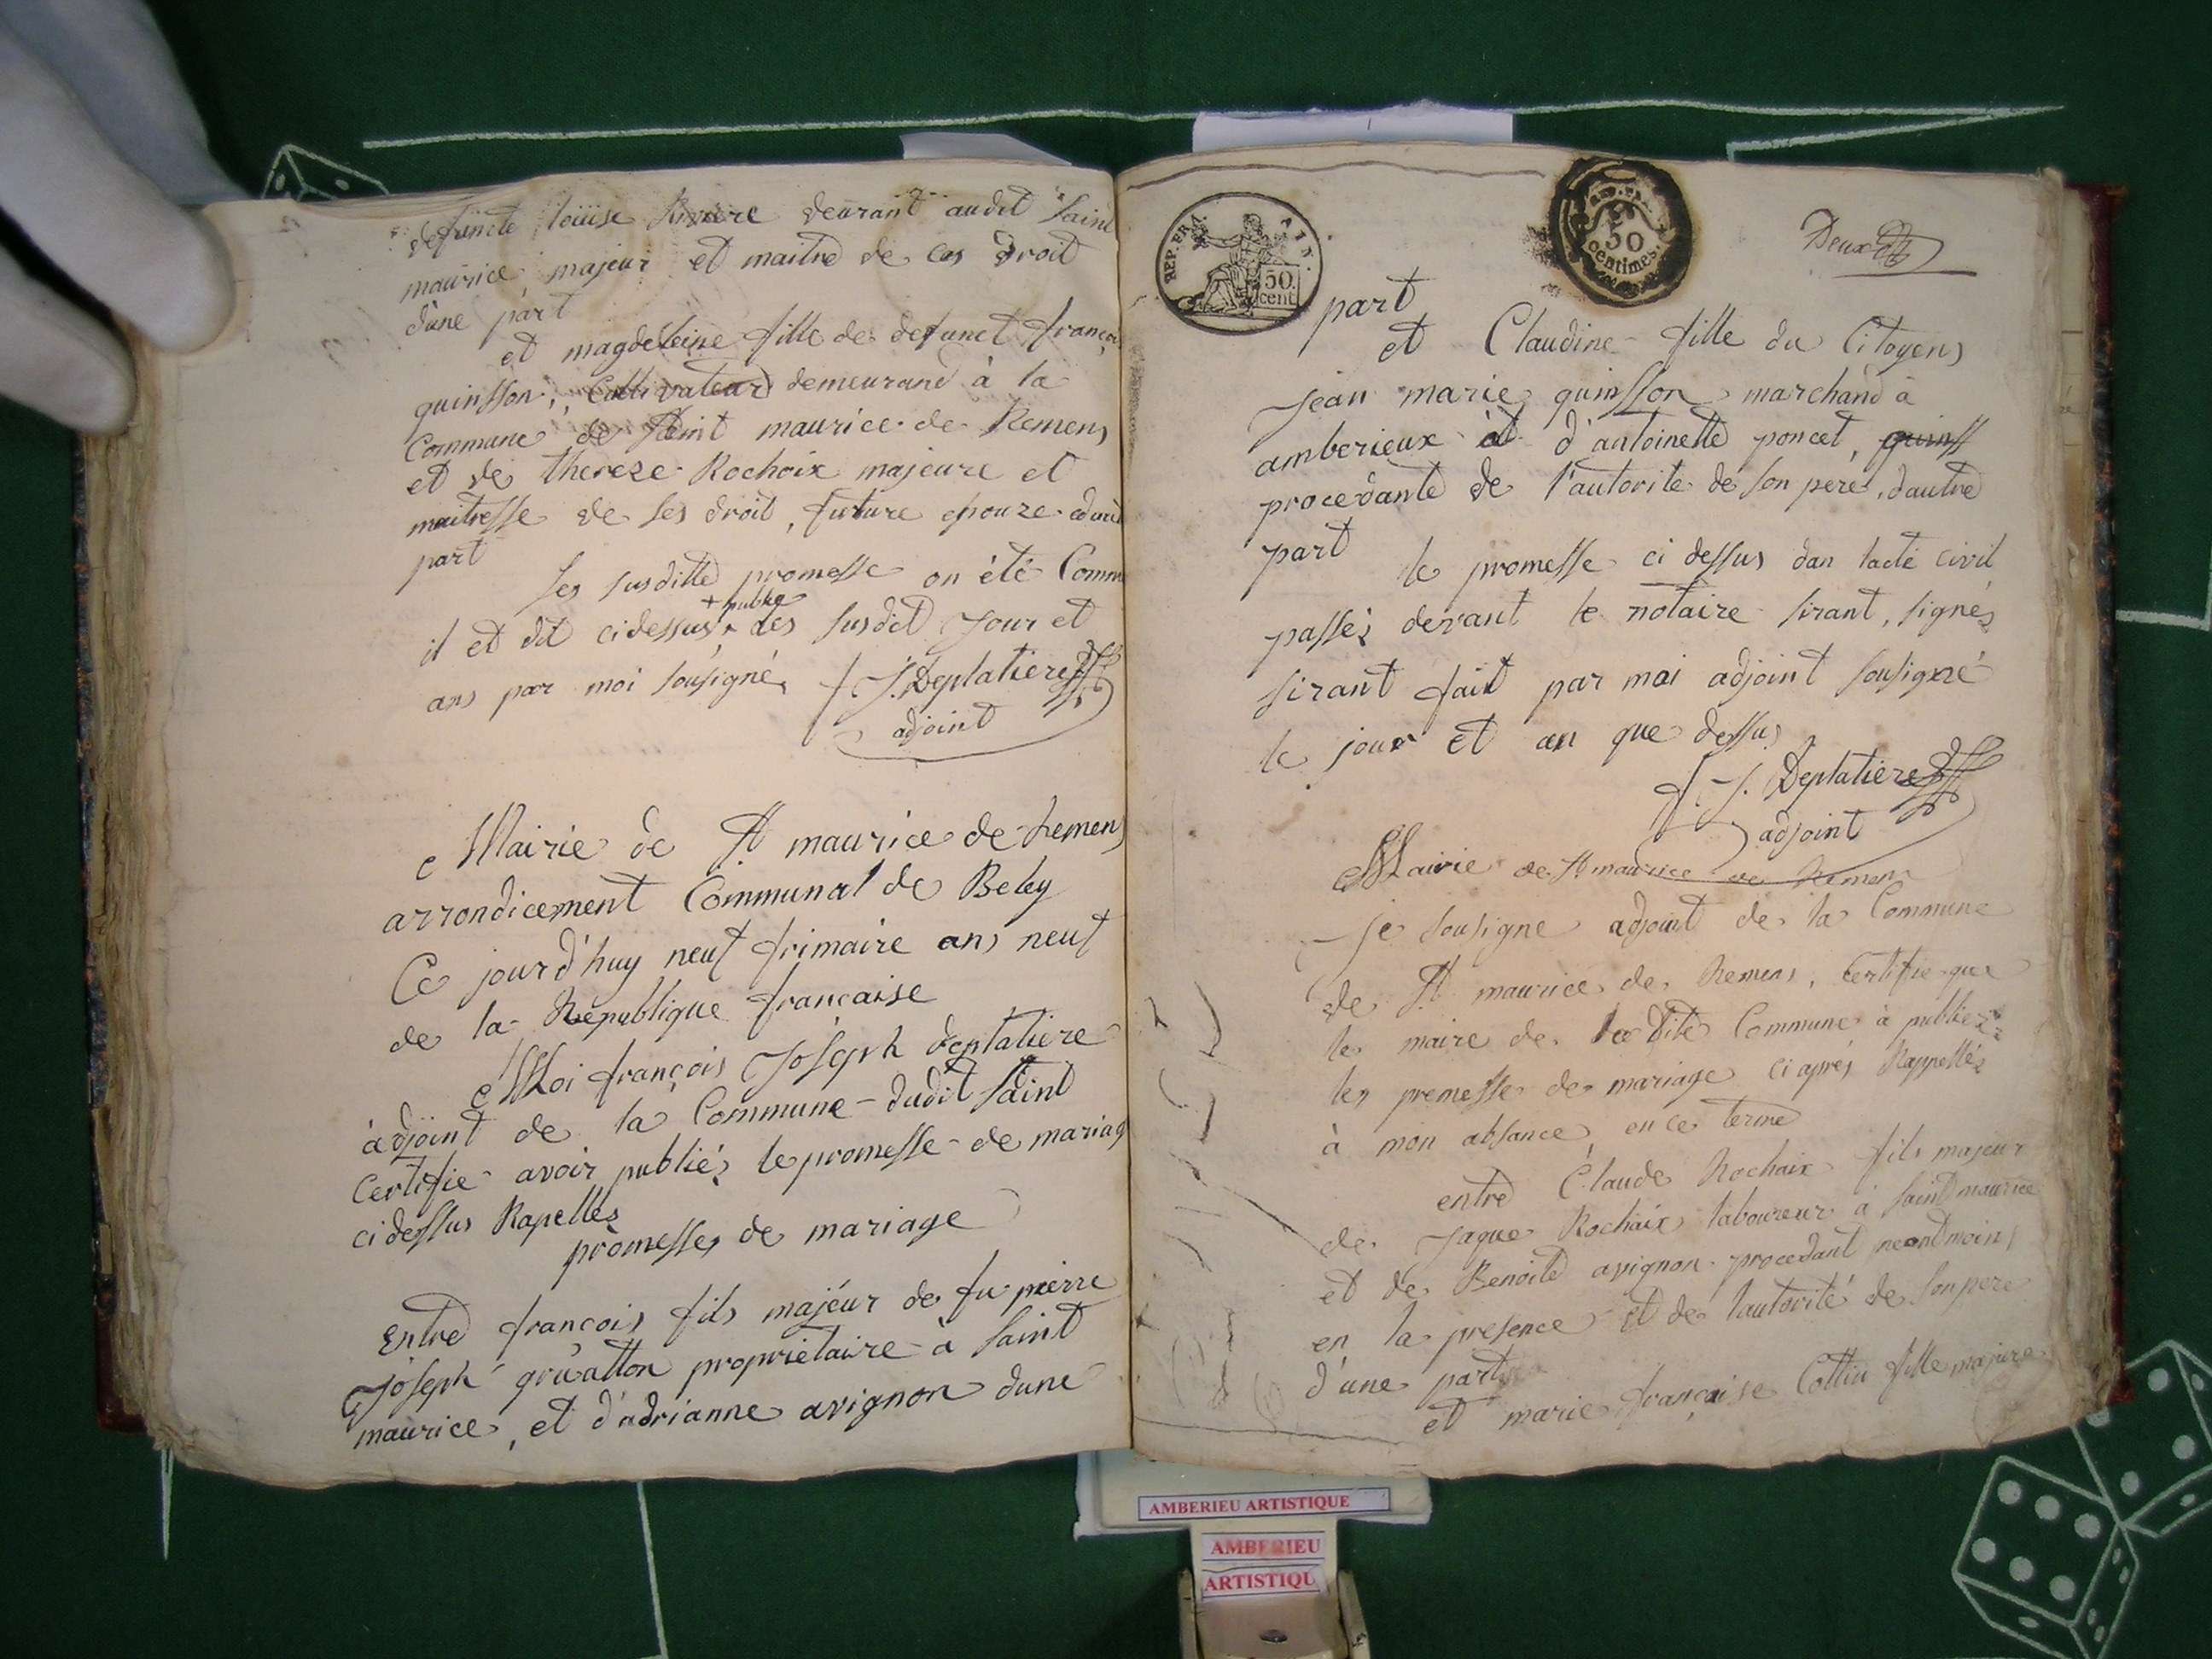 defuncte louise Riviere deurant audit Saint
maurice, majeur et maitre de ces droit
dune part
et magdeleine fille de defunct françoi
quinsson, Cultivateur demeurand à la
Commune de Saint maurice de Remens
et de thereze Rochaix majeure et
maitresse de ses droit, future epouze
part
les susditte promesse on été Comm
+ publié
il et dit cidessus, + les susdit jour et
ans par moi sousigné, f. J. Deplatiere
adjoint
Mairie de St maurice de Remens
arrondicement Communal de Beley
Ce jourd'huy neuf frimaire ans neuf
de la Republique française
Moi françois Joseph deplatiere
adjoint de la Commune dudit Saint
certifie avoir publiés le promesse de mariag
cidessus Rapellés
promesses de mariage
Entre françois fils majeur de fu pierre
Joseph gruatton proprietaire à Saint
maurice, et d'adrianne avignon dune
REP. FRA. AIN. 50. cent.
50 centimes
Deux
part
et Claudine fille du Citoyens
Jean marie quinsson marchand à
amberieux et d'antoinette poncet, quinss
procedante de l'autorite de son pere, dautre
part
le promesse ci dessus dan lacte civil
passés devant le notaire sirant, signés
sirant fait par moi adjoint sousigné
le jour et an que dessus
f. J. Deplatiere
adjoint
Mairie de St maurice de Remens
Je sousigne adjoint de la Commune
de St maurice de Remens, Certifie que
le maire de la dite Commune à publier
les premesse de mariage ci aprés Rappellés
à mon absance en ce terme
entre Claude Rochaix fils majeur
de Jaque Rochaix laboureur à Saint maurice
et de Benoite avignon procedant neontmoins
en la presence et de lautorité de son pere
d'une part
et marie françoise Cottin fille majure
AMBERIEU ARTISTIQUE
AMBERIEU
ARTISTIQU